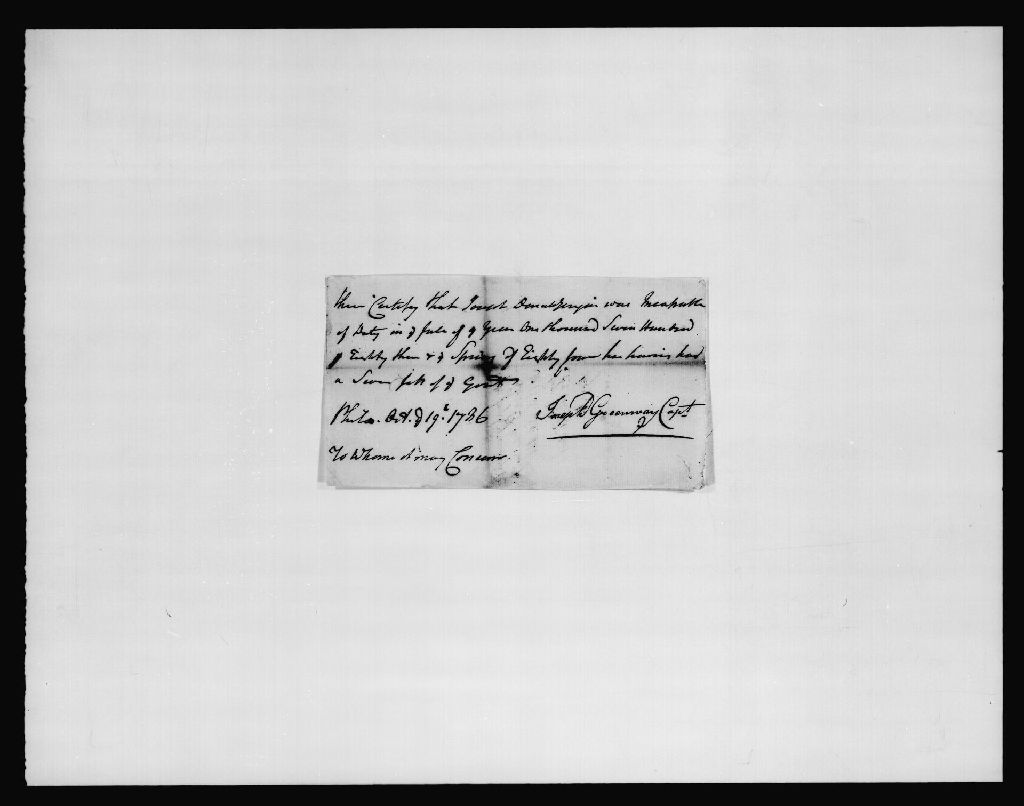 these Certify that was Incapable
of Duty in ye fale of ye Year One thousand Seven Hundred
Eighty three & ye Spring of Eighty four he having had
a Sever fitt of ye Gout
Philaa. Oct. ye 19th. 1786 Joseph Greenway Capt.
To Whome it may Concern